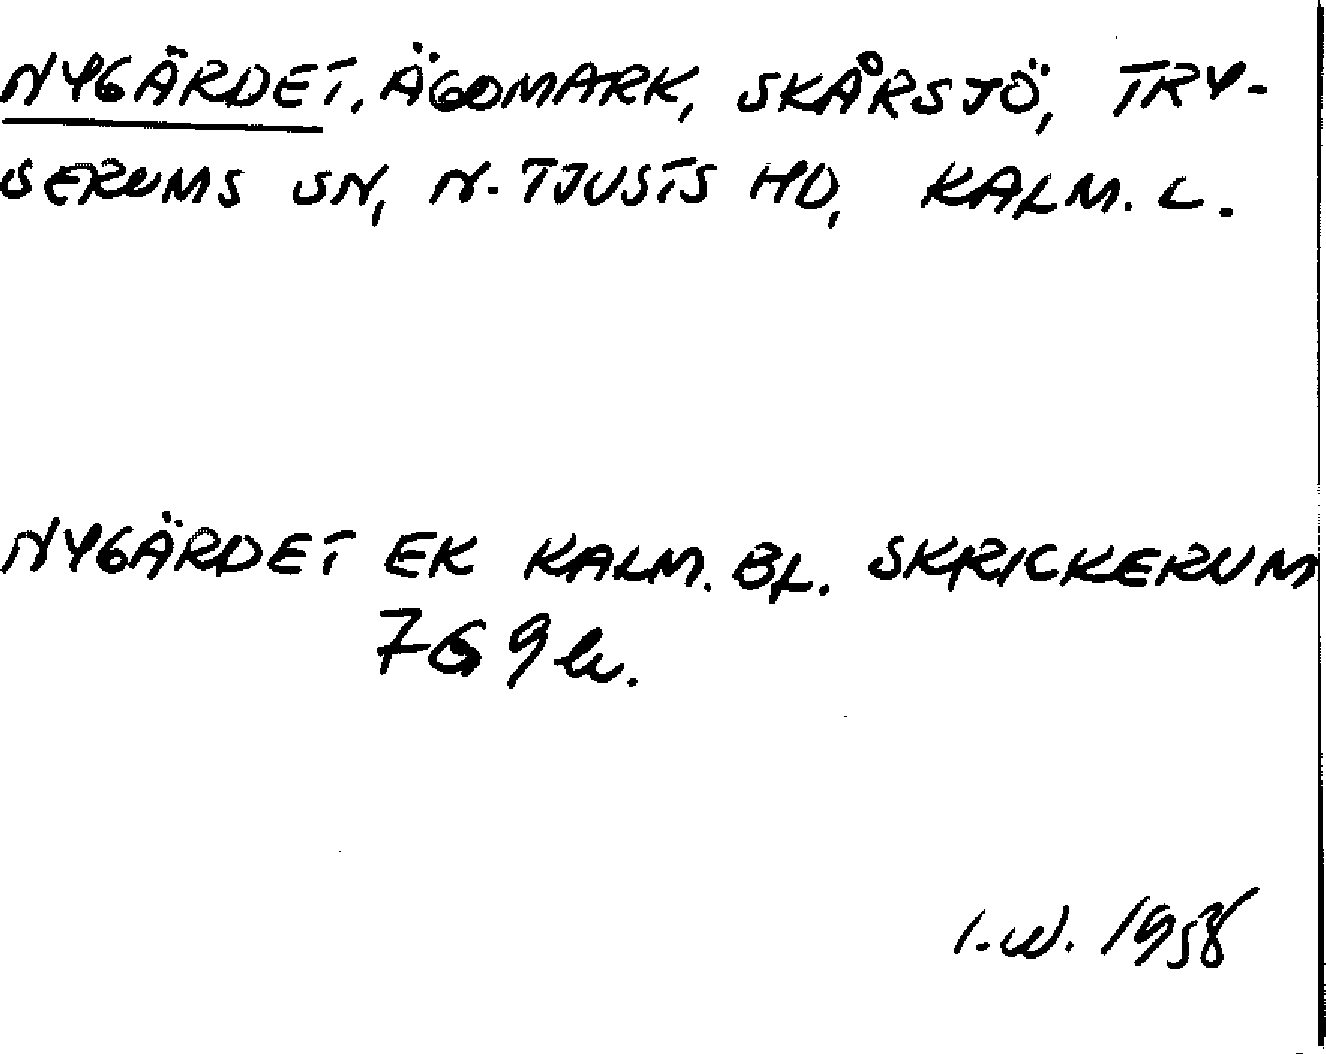 NYGÄRDET, ÄGOMARK, SKÅRSJÖ, TRY-
SERUMS SN, N. TJUSTS HD, KALM. L.
NYGÄRDET EK KALM. BL. SKRICKERUM
769
I.W. 1958